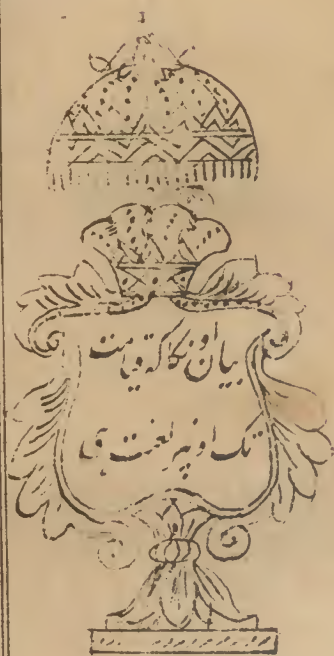 بیان اونکا کہ قیامت
تک اونپہ لعنت ہی